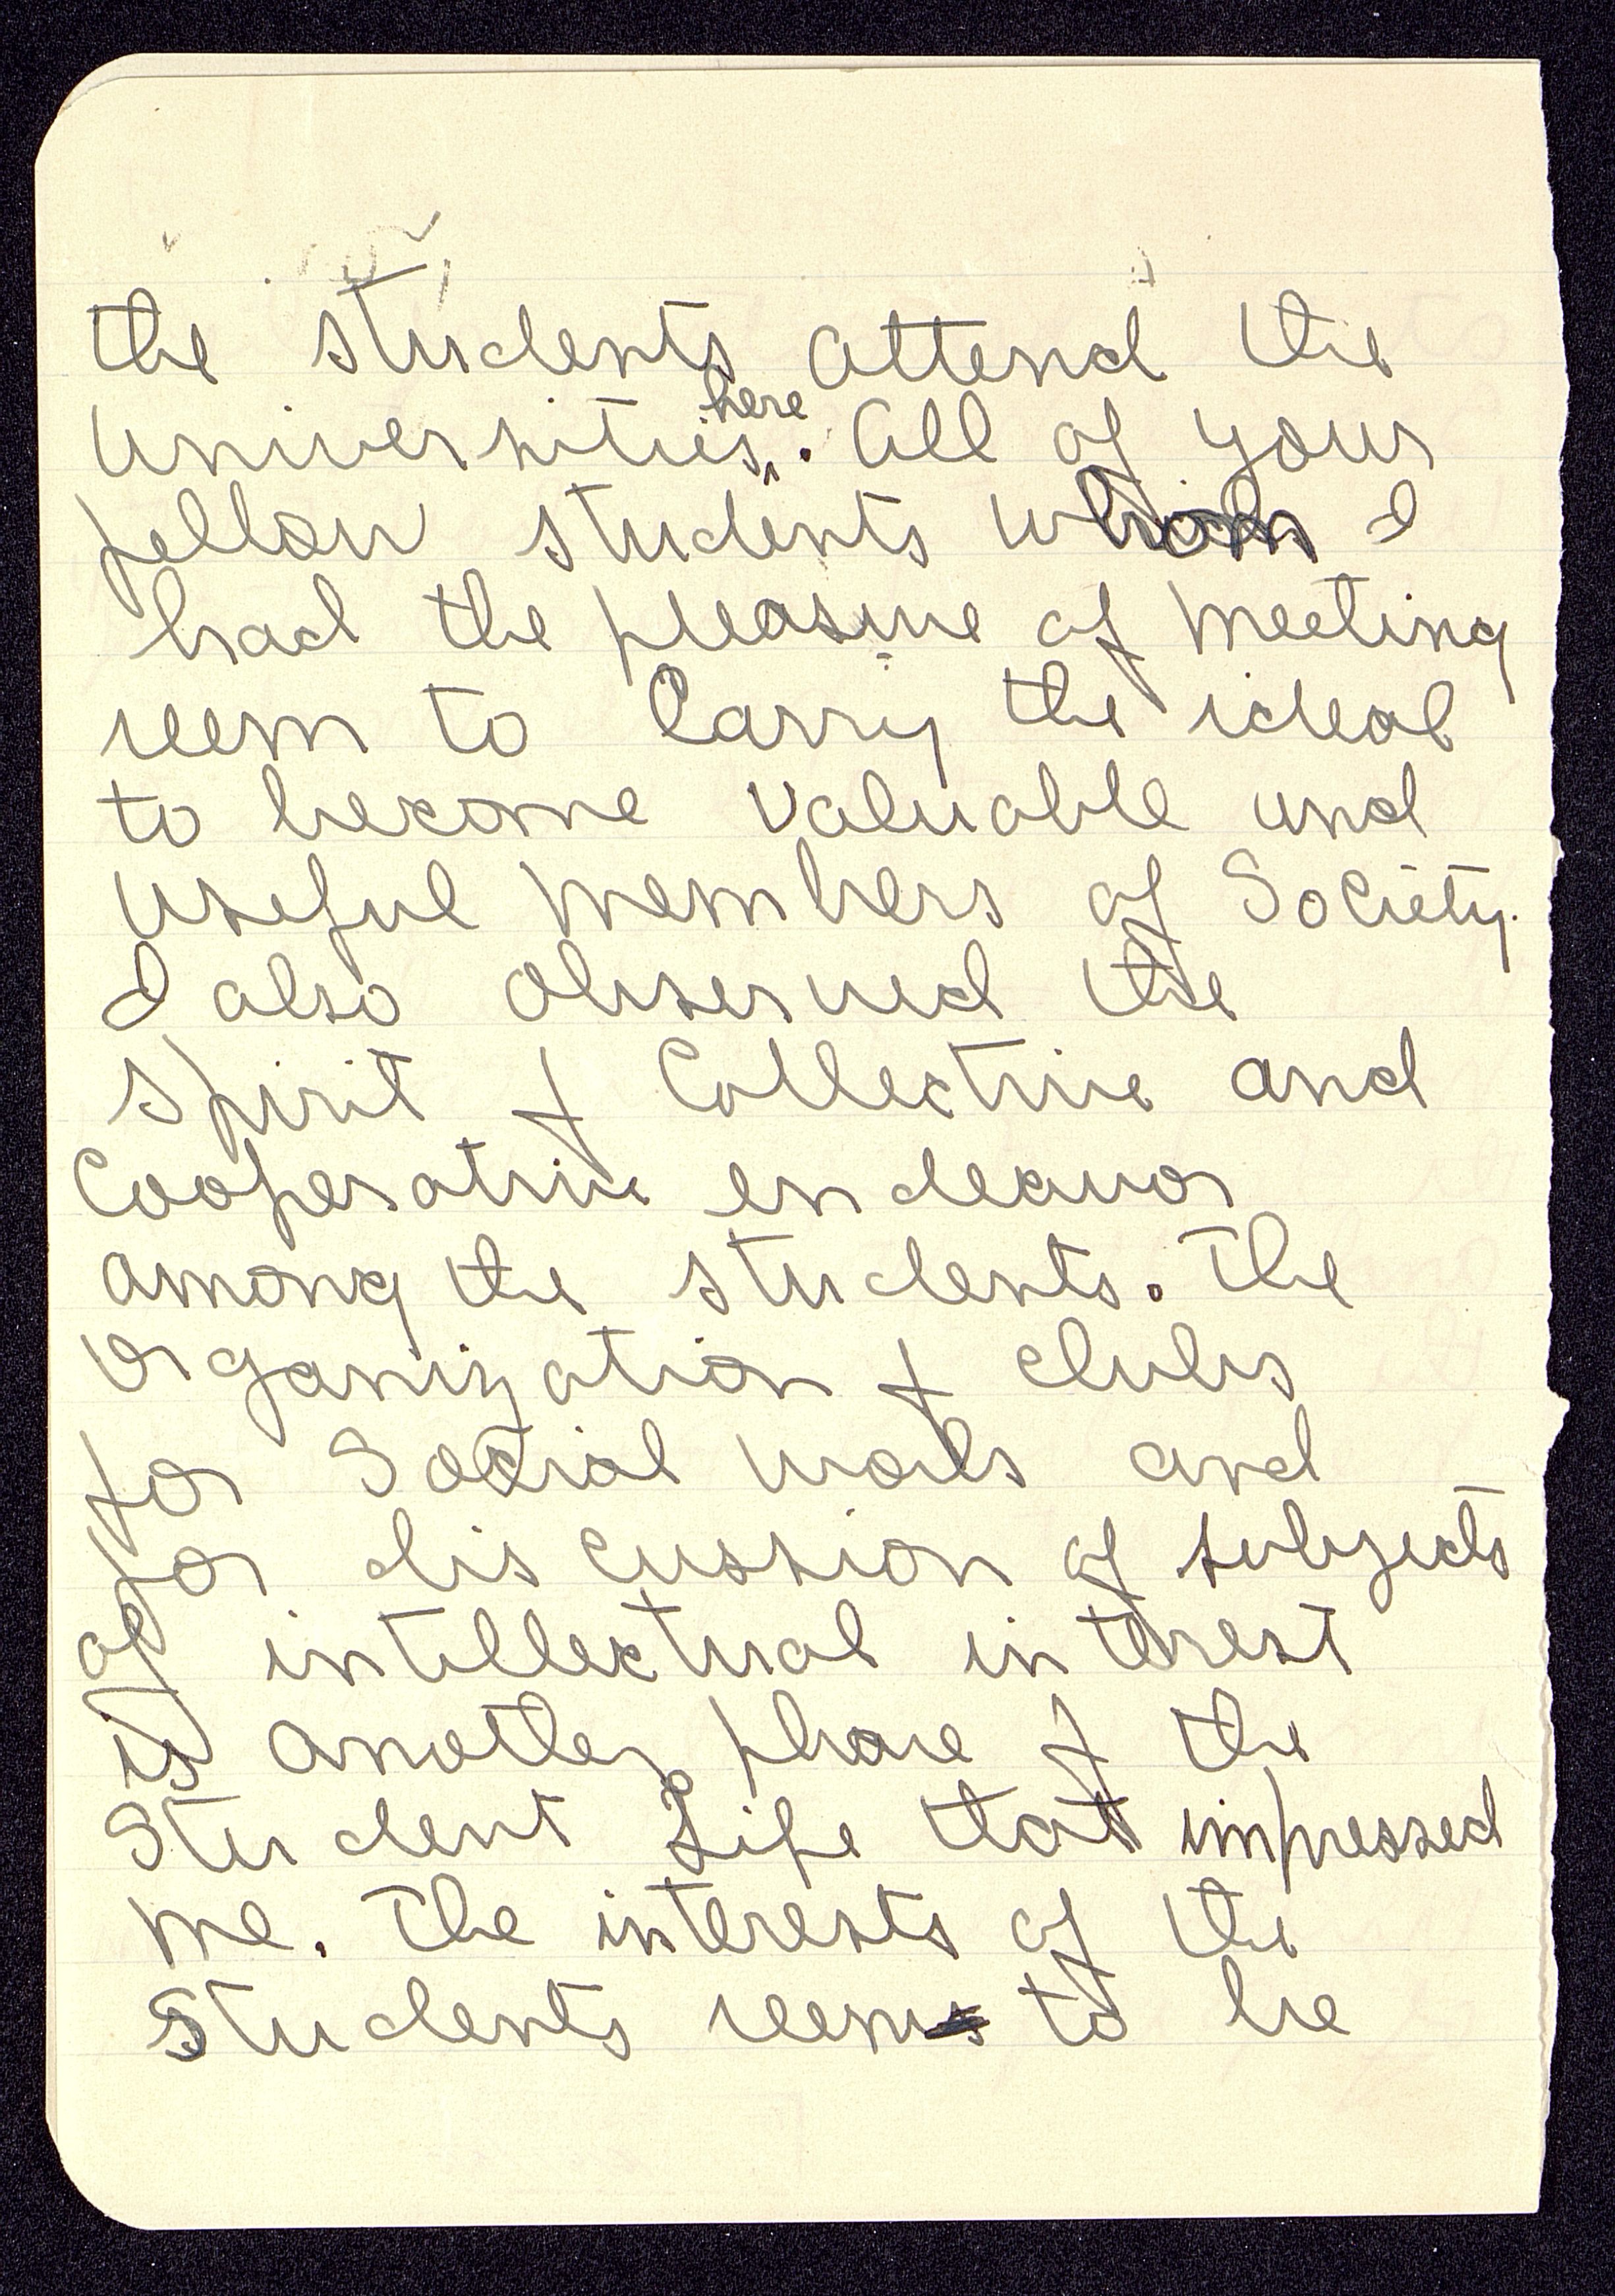 the students attend the
universities here. All of your
fellow students whom I
had the pleasure of meeting
seem to carry the ideal
to become valuable and
useful members of Society.
I also observed the
spirit of Collective and
Cooperative endeavor
among the students. The
organization of clubs
for Social work and
for discussion of subjects
of intellectual interest
is another phase of the
Student Life that impressed
me. The interests of the
Students seem to be